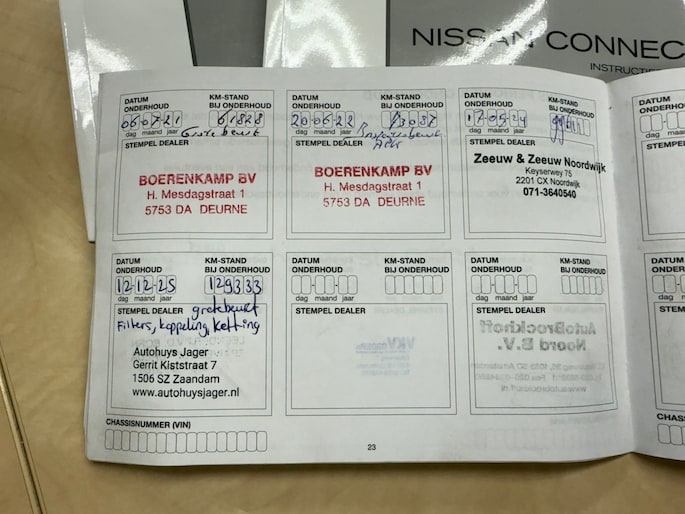 NISSAN CONNEC
INSTRUCTIE
DATUM ONDERHOUD
KM-STAND BIJ ONDERHOUD
06-07-21
61828
dag maand jaar
Grote beurt
STEMPEL DEALER
BOERENKAMP BV
H. Mesdagstraat 1
5753 DA DEURNE
DATUM ONDERHOUD
KM-STAND BIJ ONDERHOUD
20-06-22
dag maand jaar
STEMPEL DEALER
BOERENKAMP BV
H. Mesdagstraat 1
5753 DA DEURNE
DATUM ONDERHOUD
KM-STAND BIJ ONDERHOUD
17-05-24
dag maand jaar
STEMPEL DEALER
Zeeuw & Zeeuw Noordwijk
Keyserwey 75
2201 CX Noordwijk
071-3640540
DATUM ONDERHOUD
KM-STAND BIJ ONDERHOUD
12-12-25
129333
dag maand jaar
STEMPEL DEALER
grote beurt
Filters, koppeling, ketting
Autohuys Jager
Gerrit Kiststraat 7
1506 SZ Zaandam
www.autohuysjager.nl
DATUM ONDERHOUD
KM-STAND BIJ ONDERHOUD
dag maand jaar
STEMPEL DEALER
DATUM ONDERHOUD
KM-STAND BIJ ONDERHOUD
dag maand jaar
STEMPEL DEALER
AutoBrockhoff
Noord B.V.
CHASSISNUMMER (VIN)
23